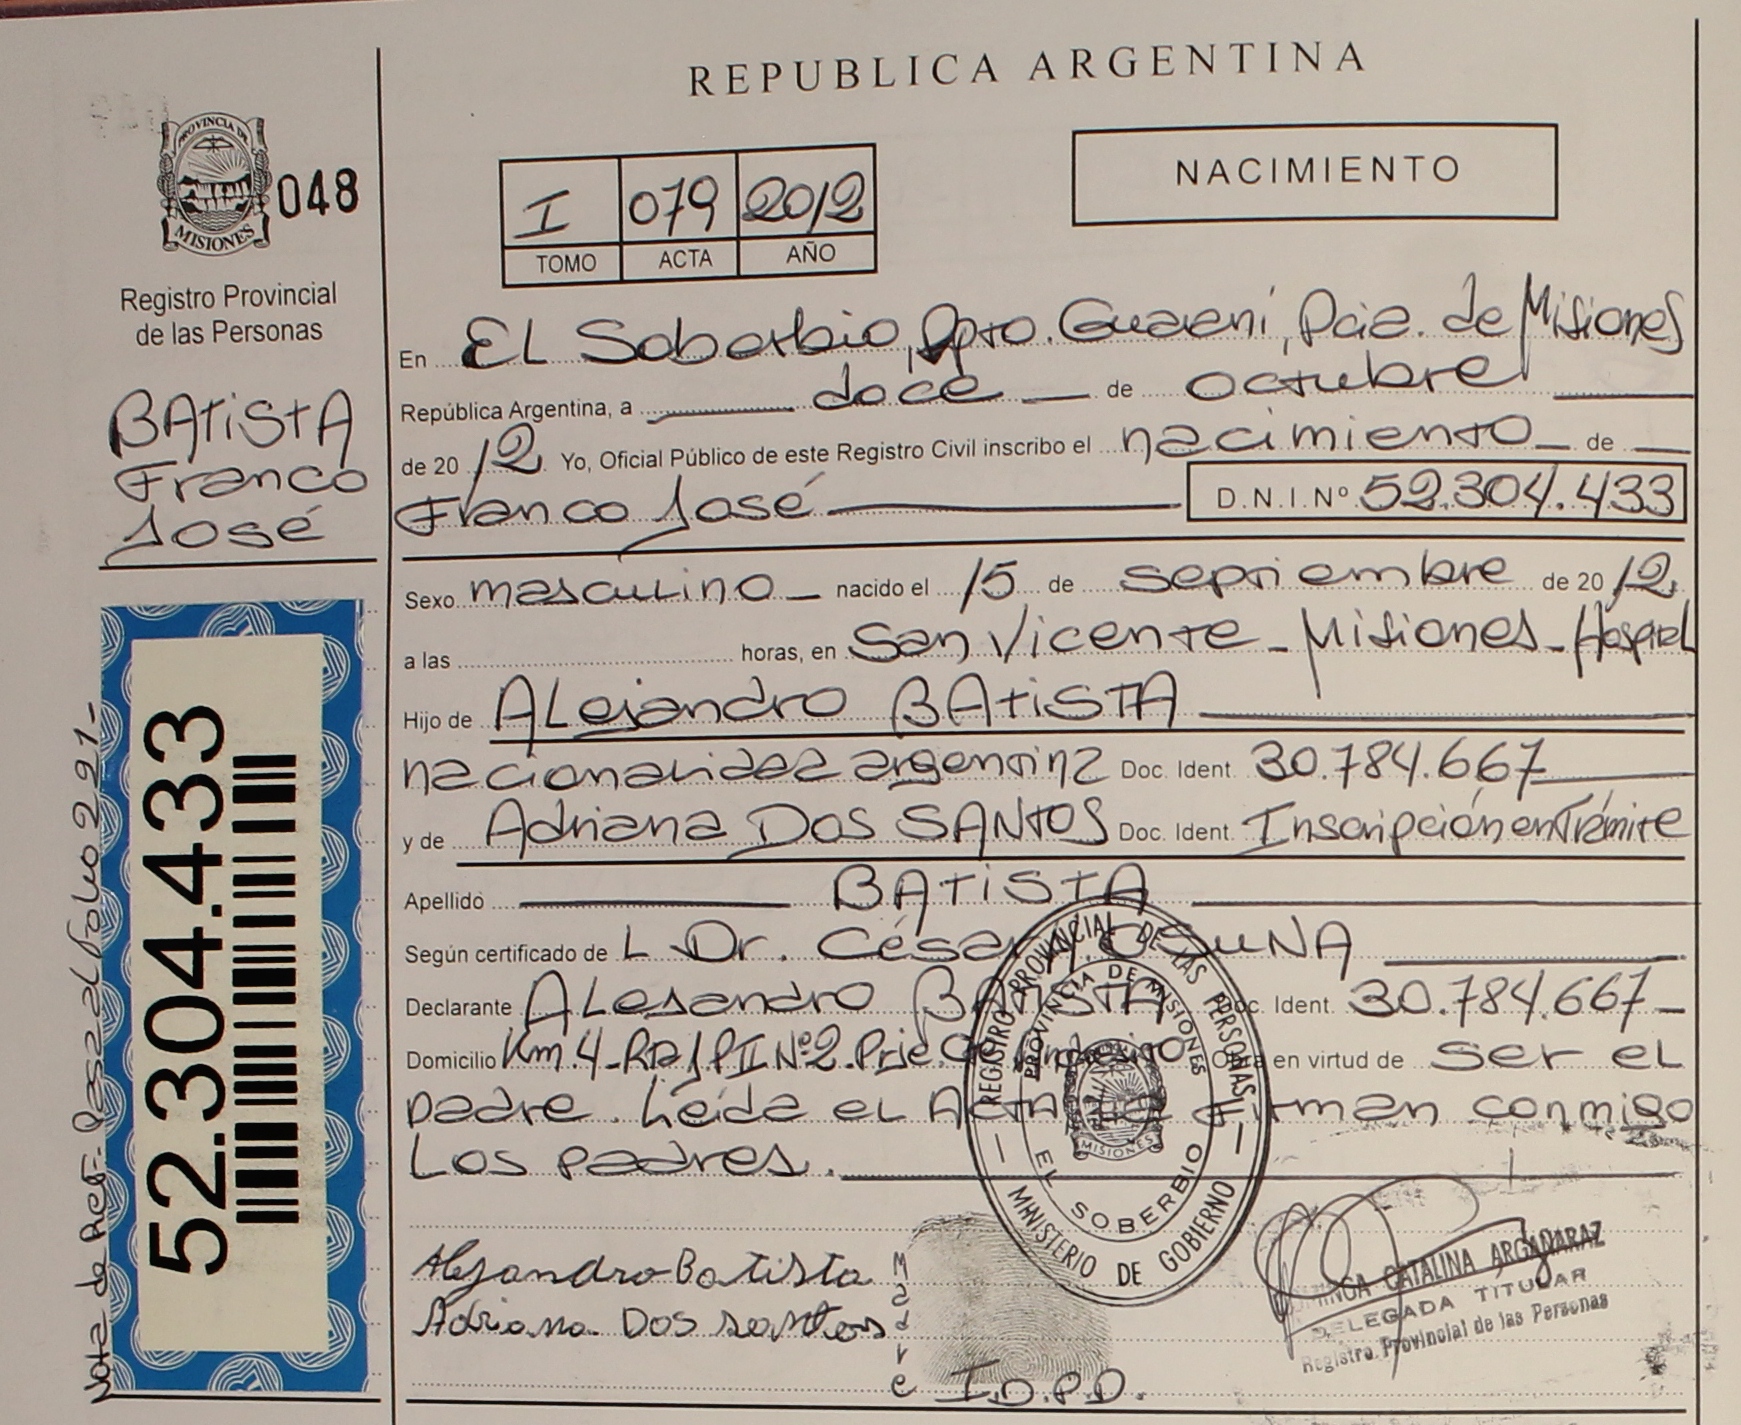 REPUBLICA ARGENTINA
PROVINCIA DE MISIONES
048
Registro Provincial
de las Personas
BATISTA
Franco
José
NACIMIENTO
I 079 2012
TOMO ACTA AÑO
En EL Soberbio, Dpto. Guaraní, Pcia. de Misiones
República Argentina, a doce de octubre
de 2012 Yo, Oficial Público de este Registro Civil inscribo el nacimiento de
Franco José D.N.I.Nº 52.304.433
Sexo masculino nacido el 15 de septiembre de 2012
a las horas, en San Vicente - Misiones - Hospital
Hijo de ALejandro BATISTA
nacionalidad argentina Doc. Ident. 30.784.667
y de Adriana Dos SANTOS Doc. Ident. Inscripción en Trámite
Apellido BATISTA
Según certificado de L Dr. César OSUNA
Declarante ALejandro BATISTA Doc. Ident. 30.784.667
Domicilio Km. 4 - Nº 2 en virtud de ser el
padre. Leída el Acta firman conmigo
Los padres.
Alejandro Batista
Adriana Dos santos
Madre
I.D.P.D.
REGISTRO PROVINCIAL DE LAS PERSONAS
PROVINCIA DE MISIONES
MISIONES
EL SOBERBIO
MINISTERIO DE GOBIERNO
CATALINA ARGAÑARAZ
DELEGADA TITULAR
Registro Provincial de las Personas
52.304.433
Nota de Ref. Pasa al Folio 291-